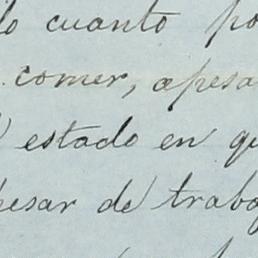 lo cuanto po
comer, apesa
estado en qu
pesar de traba